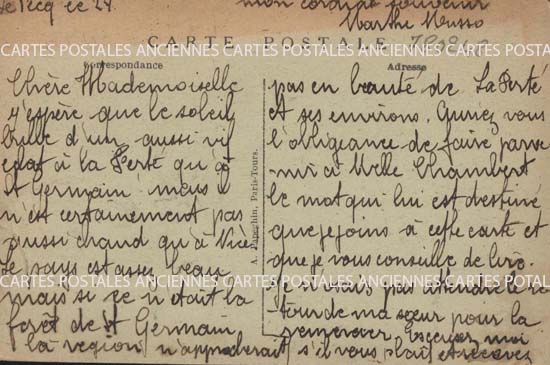 le Pecq ce 24
mon cordial souvenir
Marthe Musso
CARTE POSTALE
CARTES POSTALES ANCIENNES CARTES POSTALES ANCIENNES CARTES POSTALES ANCIENNES
Correspondance
Adresse
Chère Mademoiselle
j'espère que le soleil
brille d'un aussi vif
éclat à la Ferté qu'à
St Germain mais il
n'est certainement pas
aussi chaud qu'à
le pays est assez beau
mais si ce n'était la
forêt de St Germain
la région n'approcherait
A. Papeghin, Paris-Tours.
pas en beauté de La Ferté
et ses environs. Auriez vous
l'obligeance de faire
à Melle Chambert
le mot qui lui est destiné
que je joins à cette carte et
que je vous conseille de lire.
Je n'avais pas attendre le re
tour de ma sœur pour la
remercier. Excusez moi
s'il vous plaît et recevez